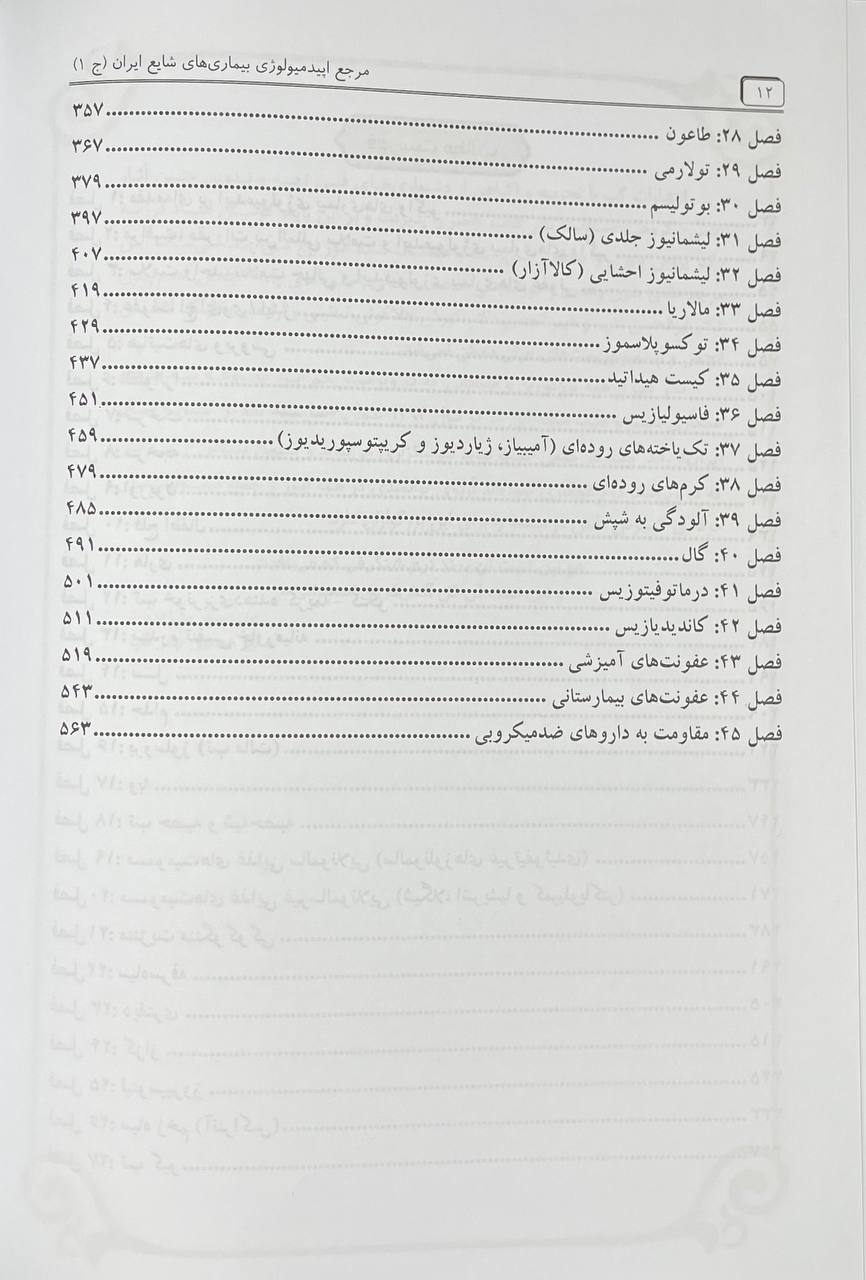 ۱۲ مرجع اپیدمیولوژی بیماری‌های شایع ایران (ج ۱)
فصل ۲۸: طاعون ........ ۳۵۷
فصل ۲۹: تولارمی ........ ۳۶۷
فصل ۳۰: بوتولیسم ........ ۳۷۹
فصل ۳۱: لیشمانیوز جلدی (سالک) ........ ۳۹۷
فصل ۳۲: لیشمانیوز احشایی (کالاآزار) ........ ۴۰۷
فصل ۳۳: مالاریا ........ ۴۱۹
فصل ۳۴: توکسوپلاسموز ........ ۴۲۹
فصل ۳۵: کیست هیداتید ........ ۴۳۷
فصل ۳۶: فاسیولیازیس ........ ۴۵۱
فصل ۳۷: تک‌یاخته‌های روده‌ای (آمیبیاز، ژیاردیوز و کریپتوسپوریدیوز) ........ ۴۵۹
فصل ۳۸: کرم‌های روده‌ای ........ ۴۷۹
فصل ۳۹: آلودگی به شپش ........ ۴۸۵
فصل ۴۰: گال ........ ۴۹۱
فصل ۴۱: درماتوفیتوزیس ........ ۵۰۱
فصل ۴۲: کاندیدیازیس ........ ۵۱۱
فصل ۴۳: عفونت‌های آمیزشی ........ ۵۱۹
فصل ۴۴: عفونت‌های بیمارستانی ........ ۵۴۳
فصل ۴۵: مقاومت به داروهای ضدمیکروبی ........ ۵۶۳